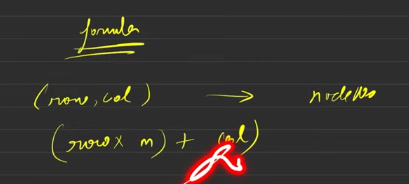 formula
(row, col) → node no
(row x m) + col)